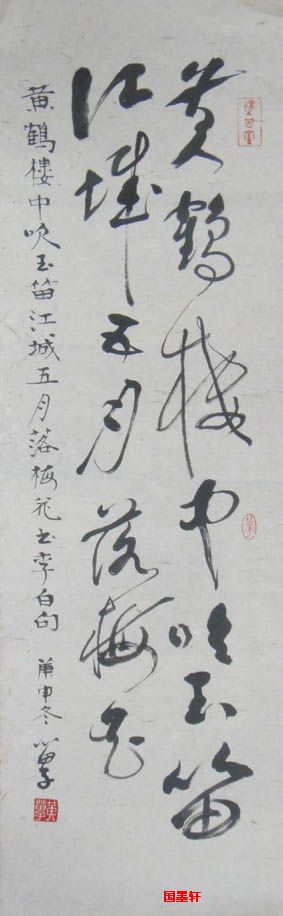 黄鹤楼中吹玉笛
江城五月落梅花
黄鹤楼中吹玉笛江城五月落梅花 书李白句
庚申冬
国墨轩